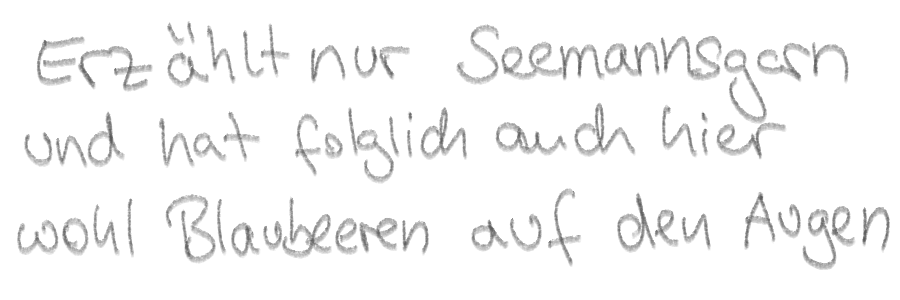 Erzählt nur Seemannsgarn
und hat folglich auch hier
wohl Blaubeeren auf den Augen